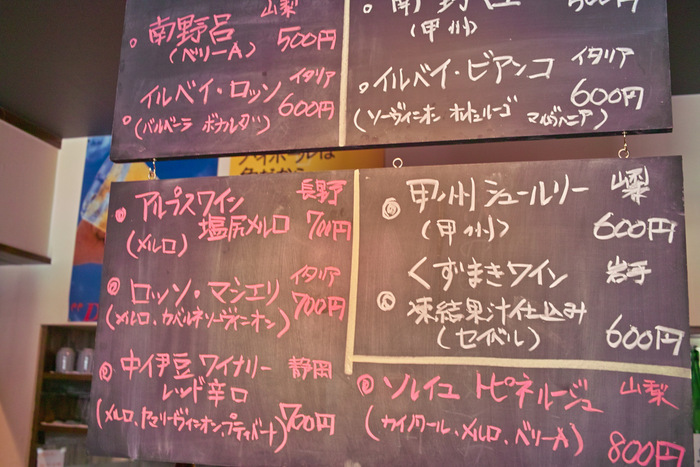 南野呂 山梨
(ベリーA) 500円
イルベイ・ロッソ イタリア
600円
(バルベーラ ボナルダ)
500円
(甲州)
イルベイ・ビアンコ イタリア
600円
(ソーヴィニオン オルトゥルーゴ マルヴァニア)
アルプスワイン 長野
塩尻メルロ 700円
(メルロ)
ロッソ・マシェリ イタリア
700円
(メルロ、カベルネソーヴィニオン)
中伊豆ワイナリー 静岡
レッド辛口
700円
甲州シュールリー 山梨
(甲州) 600円
くずまきワイン 岩手
凍結果汁仕込み
(セイベル) 600円
ソレイユ トピネルージュ 山梨
(カイノワール、メルロ、ベリーA)
800円